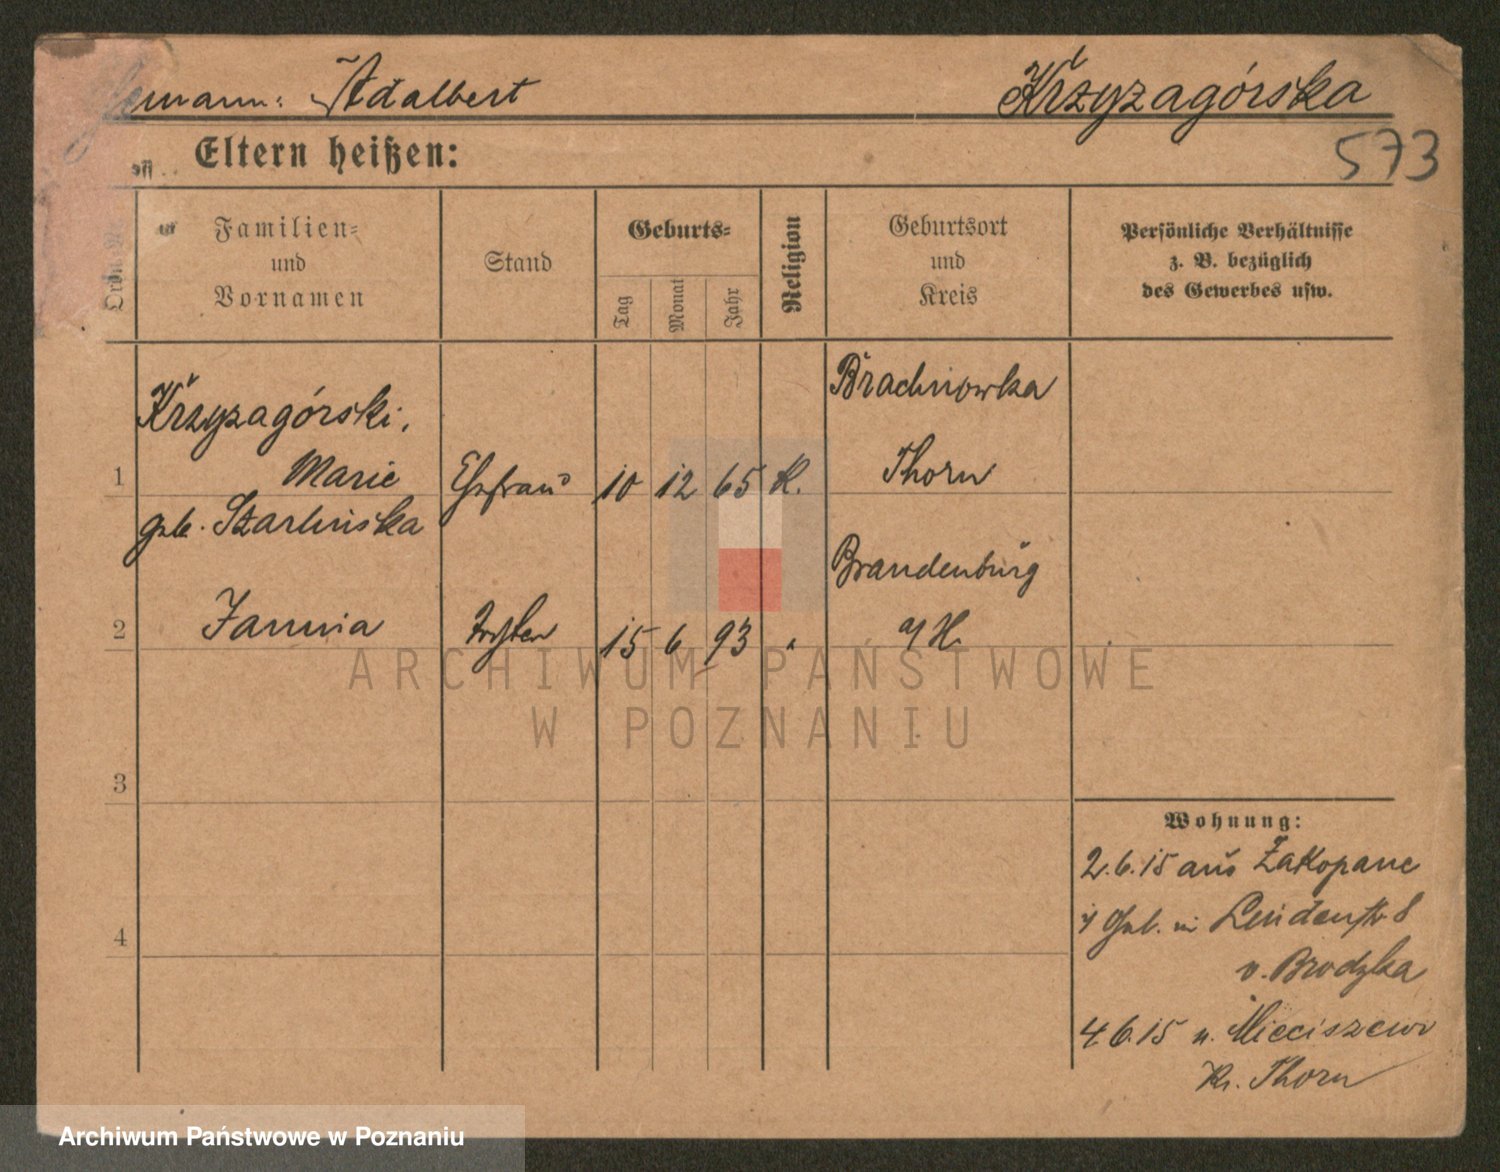 Ehemann: Adalbert Krzyzagórska
573
Eltern heißen:
Ordn. Nr.
Familien-
und
Vornamen
Stand
Geburts-
Tag
Monat
Jahr
Religion
Geburtsort
und
Kreis
Persönliche Verhältnisse
z. B. bezüglich
des Gewerbes usw.
Krzyzagórski,
1 Marie Ehefrau 10 12 65 K. Brachnowka
Thorn
geb. Szarlinska
2 Janina Tochter 15 6 93 " Brandenburg
a/H.
3
4
Wohnung:
2.6.15 aus Zakopane
Lindenstr 8
v. Brodzka
4.6.15 n. Mieciszewo
Kr. Thorn
ARCHIWUM PAŃSTWOWE
W POZNANIU
Archiwum Państwowe w Poznaniu